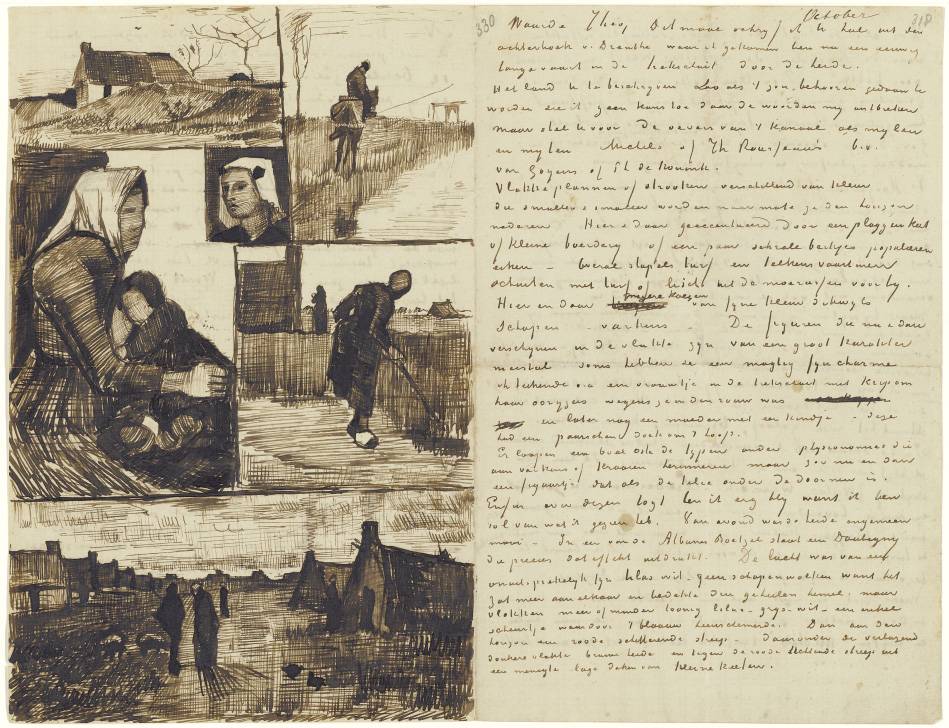 October
330
318
Waarde Theo, Dit maal schrijf ik U hel uit den
achterhoek v. Drenthe waar ik gekomen ben na een eeuwig
lange vaart in de trekschuit door de heide.
Het land te beschrijven zoo als 't zou behooren gedaan te
worden zie ik geen kans toe daar de woorden my ontbreken
maar stel U voor De oevers van 't kanaal als mylen
en mylen Michels of Th Rousseau's b.v.
van Goyens of Ph de Koninck.
Vlakke plannen of strooken verschillend van kleur
die smaller & smaller worden naar mate ze den horizon
naderen. Hier & daar geaccentueerd door een plaggen keet
of kleine boerdery of een paar schrale berkjes populieren
eiken – overal stapels turf en telkens vaart men
schuiten met turf of lisch uit de moerassen voorby.
Hier en daar magere koeien van fyne kleur
Schapen – varkens – De figuren die nu & dan
verschynen in de vlakte zyn van een groot karakter
meestal soms hebben ze een charme
ik teekende o.a. een vrouwtje in de trekschuit met krip om
haar oorijzers wegens ze in den rouw was
en later nog een moeder met een kindje – deze
had een paarschen doek om 't hoofd.
Er loopen een boel de typen onder physionomies die
aan varkens of kraaien herinneren maar zoo nu en dan
een figuurtje dat als de lelie onder de doornen is.
Enfin over dezen togt ben ik erg bly want ik ben
vol van wat ik gezien heb. Van avond was de heide ongemeen
mooi – In een van de Albums Boetzel staat een Daubigny
die precies dat effekt uitdrukt. De lucht was van een
onuitsprekelyk fyn lilas wit – geen schapenwolken want het
zat meer aan elkaar en bedekte den geheelen hemel, maar
vlokken meer of minder toonig lilas – grys – wit – een enkel
scheurtje waardoor 't blaauw heenschemerde. Dan aan den
horizon een roode schitterende streep – daaronder de verbazend
donkere vlakte bruine heide en tegen de roode lichtende streep uit
een menigte lage daken van kleine keeten.